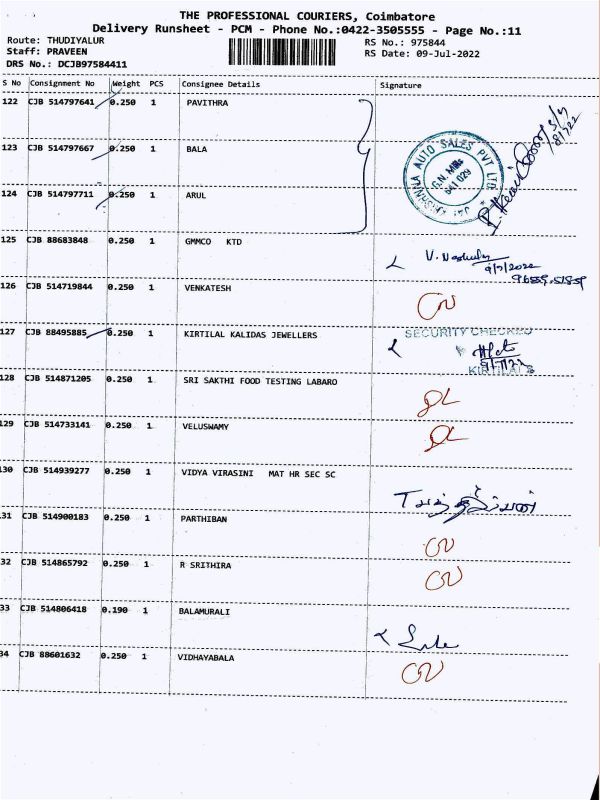 THE PROFESSIONAL COURIERS, Coimbatore
Delivery Runsheet - PCM - Phone No.:0422-3505555 - Page No.:11
Route: THUDIYALUR
Staff: PRAVEEN
DRS No.: DCJB97584411
RS No.: 975844
RS Date: 09-Jul-2022
S No Consignment No Weight PCS Consignee Details Signature
122 CJB 514797641 0.250 1 PAVITHRA
123 CJB 514797667 0.250 1 BALA
124 CJB 514797711 0.250 1 ARUL
AUTO SALES PVT LTD
G.N. Mills
641 029
125 CJB 88683848 0.250 1 GMMCO KTD
9/7/2022
126 CJB 514719844 0.250 1 VENKATESH
127 CJB 88495885 0.250 1 KIRTILAL KALIDAS JEWELLERS
SECURITY CHECKED
KIRTILALS
128 CJB 514871205 0.250 1 SRI SAKTHI FOOD TESTING LABARO
129 CJB 514733141 0.250 1 VELUSWAMY
130 CJB 514939277 0.250 1 VIDYA VIRASINI MAT HR SEC SC
31 CJB 514900183 0.250 1 PARTHIBAN
32 CJB 514865792 0.250 1 R SRITHIRA
33 CJB 514806418 0.190 1 BALAMURALI
34 CJB 88601632 0.250 1 VIDHAYABALA